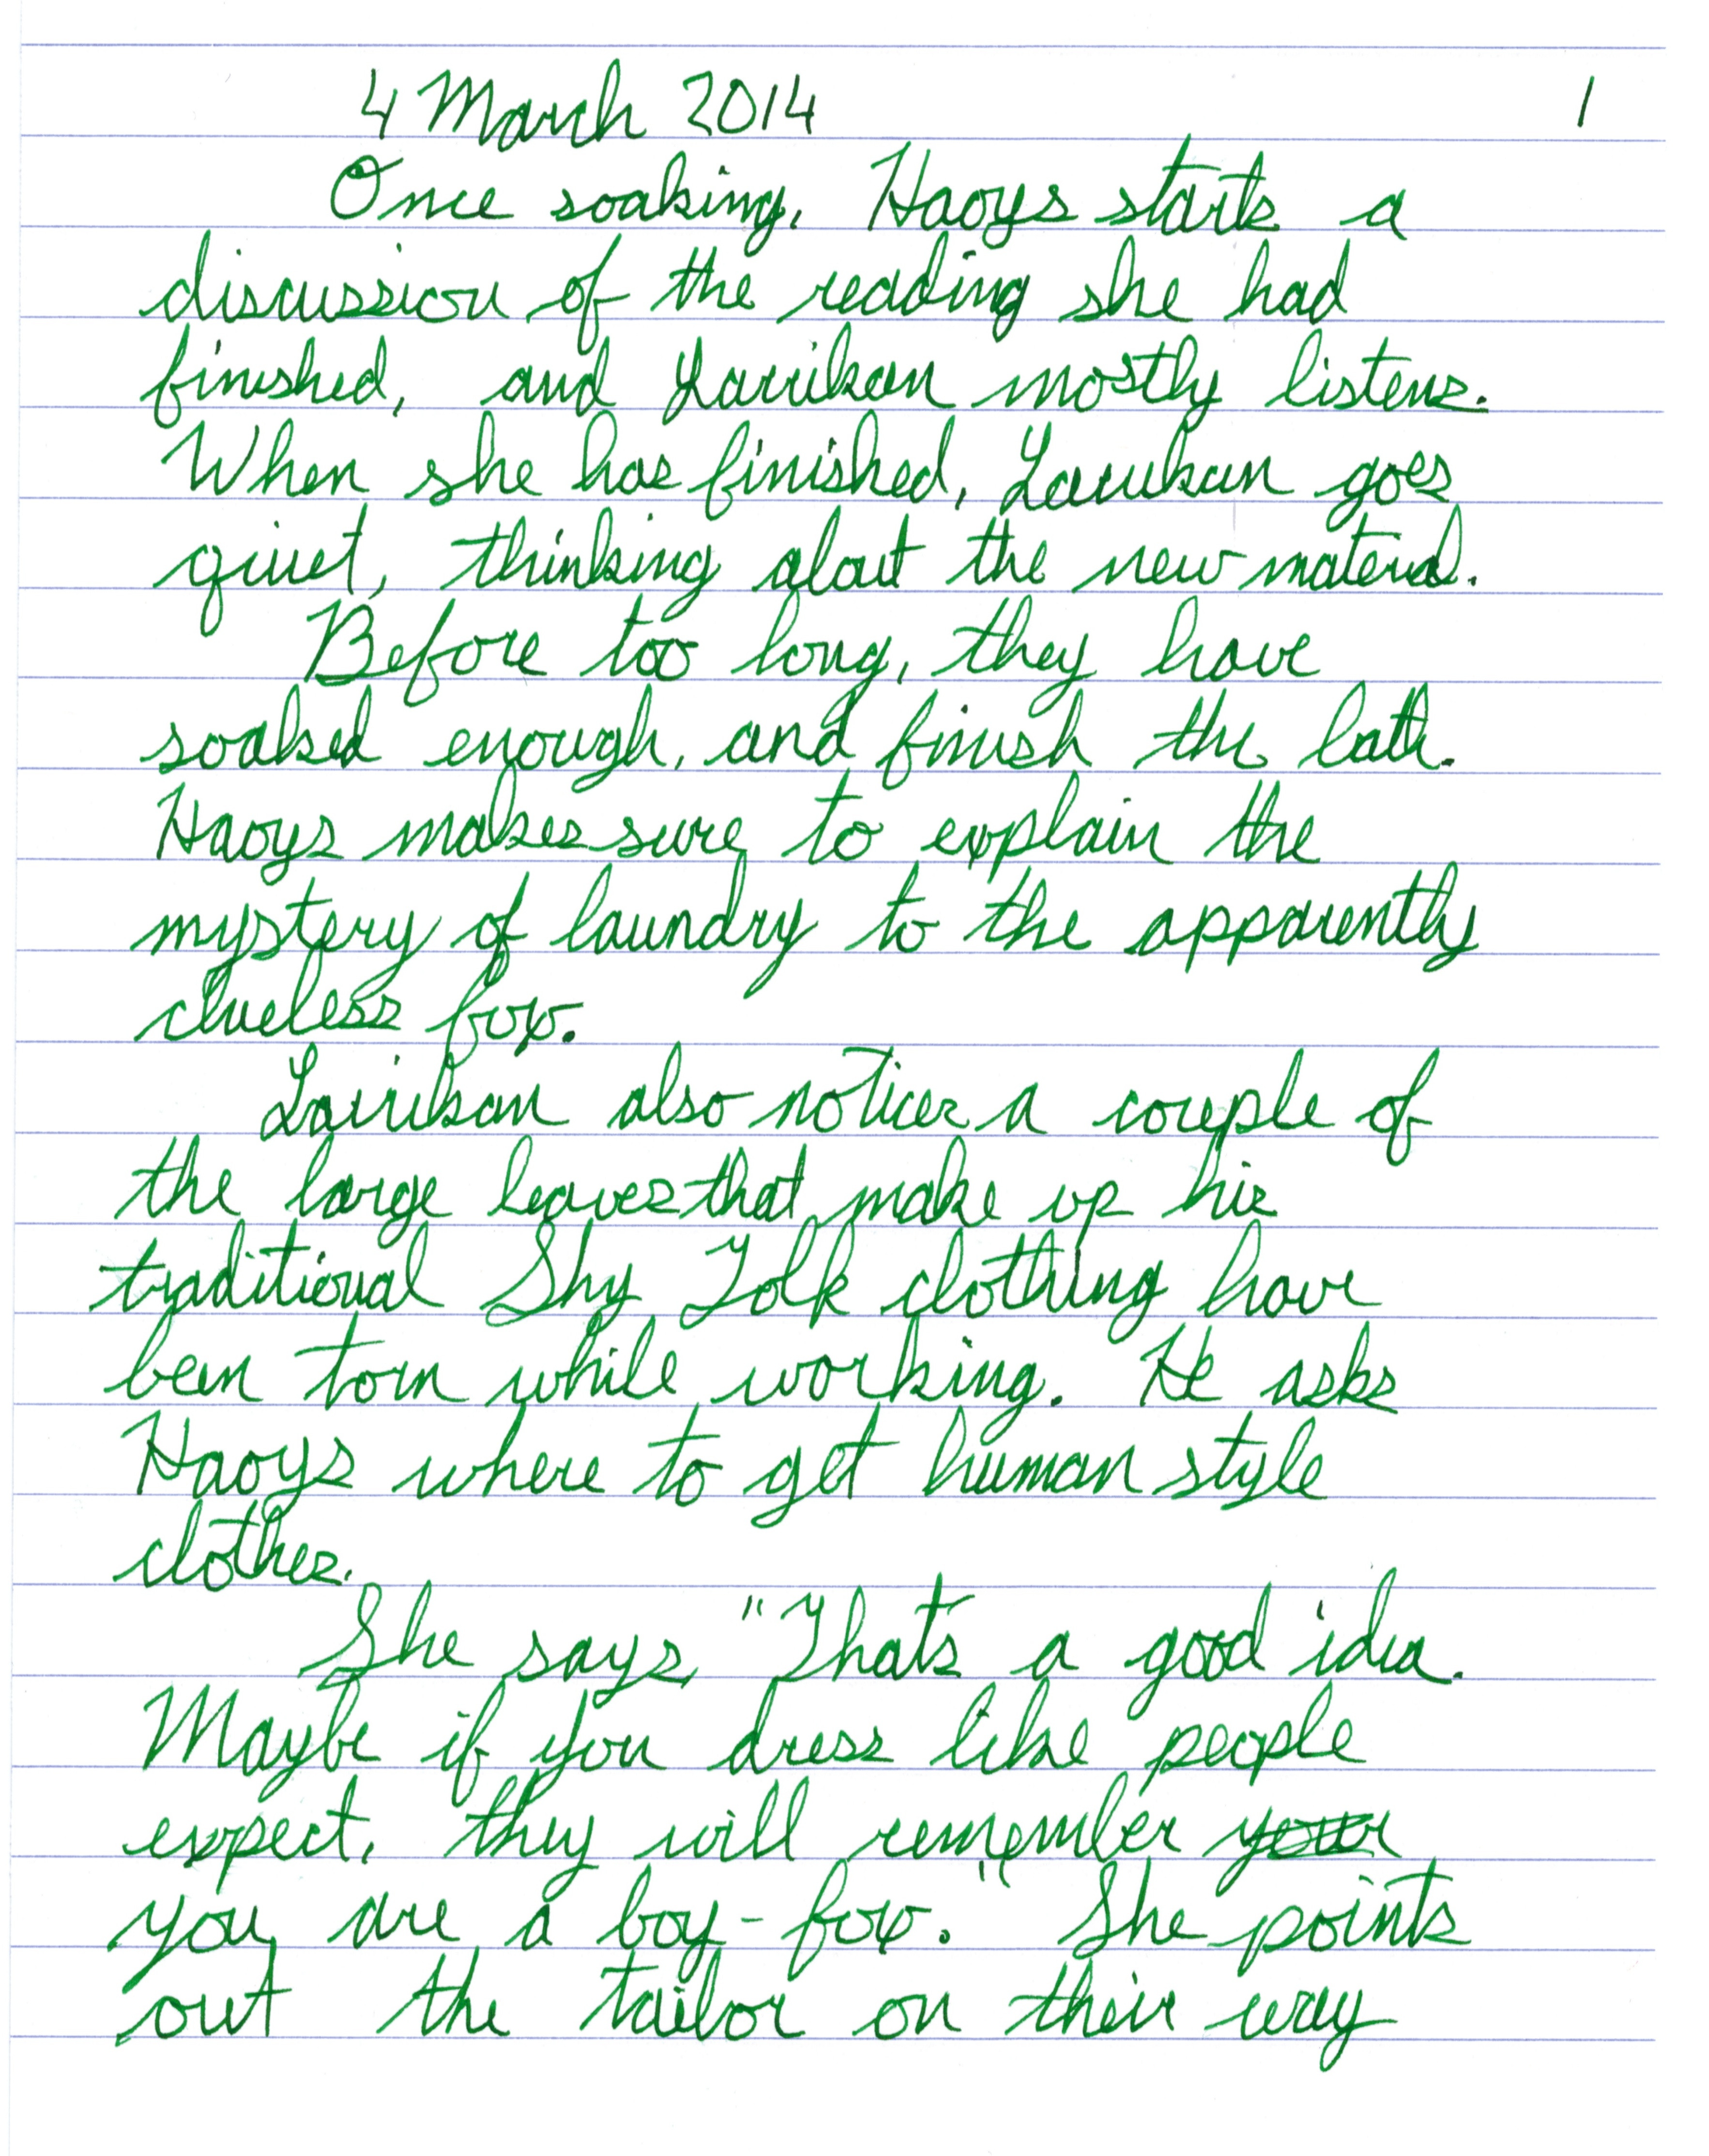 4 March 2014 1
Once soaking, Haoys starts a
discussion of the reading she had
finished, and Lairikan mostly listens.
When she has finished, Lairikan goes
quiet, thinking about the new material.
Before too long, they have
soaked enough, and finish the bath.
Haoys makes sure to explain the
mystery of laundry to the apparently
clueless fox.
Lairikan also notices a couple of
the large leaves that make up his
traditional Shy Folk clothing have
been torn while working. He asks
Haoys where to get human style
clothes.
She says, "Thats a good idea.
Maybe if you dress like people
expect, they will remember your
you are a boy-fox." She points
out the tailor on their way